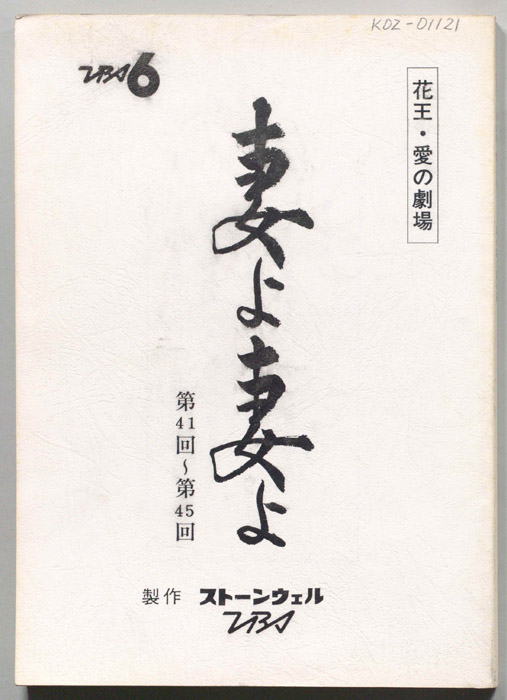 KDZ-01121
TBS6
花王・愛の劇場
妻よ妻よ
第41回〜第45回
製作 ストーンウェル
TBS